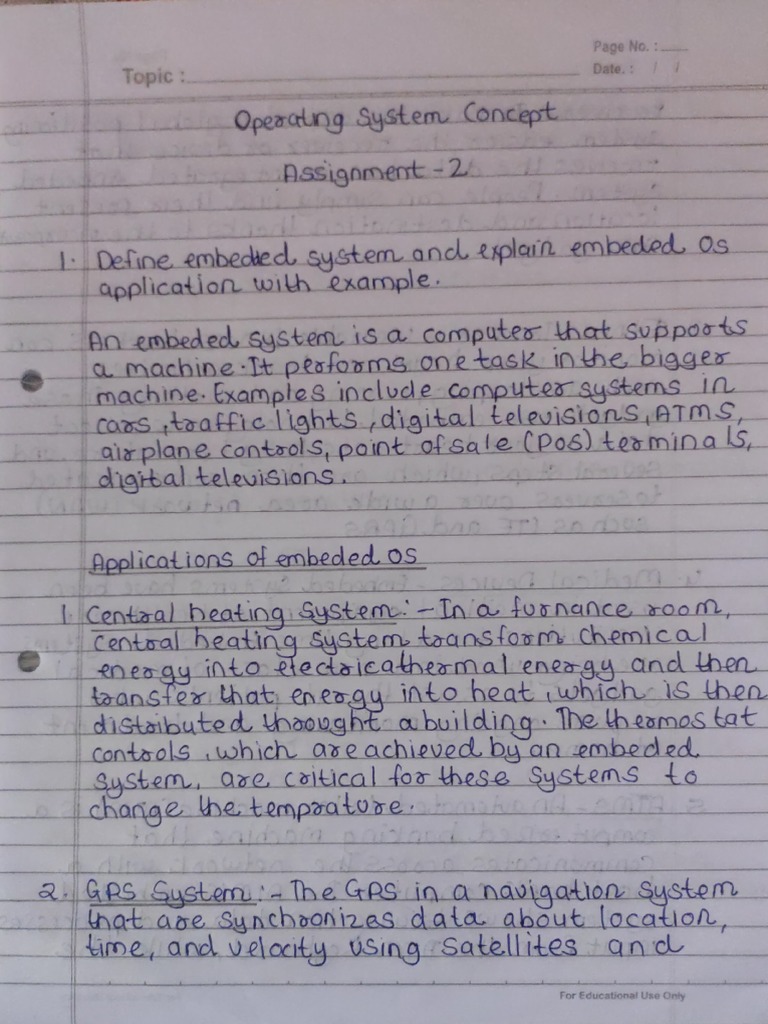 Page No. :
Topic :
Date. : / /
Operating System Concept
Assignment - 2
1. Define embeded system and explain embeded OS
application with example.
An embeded system is a computer that supports
a machine. It performs one task in the bigger
machine. Examples include computer systems in
cars, traffic lights, digital televisions, ATMS,
airplane controls, point of sale (POS) terminals,
digital televisions.
Applications of embeded OS
1. Central heating System: - In a furnance room,
central heating system transform chemical
energy into electricathermal energy and then
transfer that energy into heat, which is then
distributed throught a building. The thermostat
controls, which are achieved by an embeded
system, are critical for these systems to
change the temprature.
2. GPS System: - The GPS in a navigation system
that are synchronizes data about location,
time, and velocity using satellites and
For Educational Use Only